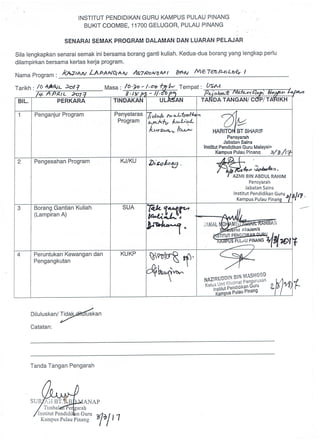 INSTITUT PENDIDIKAN GURU KAMPUS PULAU PINANG
BUKIT COOMBE, 11700 GELUGOR, PULAU PINANG
SENARAI SEMAK PROGRAM DALAMAN DAN LUARAN PELAJAR
Sila lengkapkan senarai semak ini bersama borang ganti kuliah. Kedua-dua borang yang lengkap perlu
dilampirkan bersama kertas kerja program.
Nama Program : KAJIAN LAPANGAN ASTRONOMI DAN METEOROLOGI 1
Tarikh : 10 APRIL 2017 Masa : Tempat : USM
14 APRIL 2017
BIL. PERKARA TINDAKAN ULASAN TANDA TANGAN/ COP/ TARIKH
1 Penganjur Program Penyelaras Program Tidak
HARITON BT SHARIF
Pensyarah
Jabatan Sains
Institut Pendidikan Guru Malaysia
Kampus Pulau Pinang 2/3/17
2 Pengesahan Program KJ/KU Disokong.
AZMI BIN ABDUL RAHIM
Pensyarah
Jabatan Sains
Institut Pendidikan Guru
Kampus Pulau Pinang
3 Borang Gantian Kuliah (Lampiran A) SUA Tak ganggu kuliah. Disokong.
INSTITUT PENDIDIKAN GURU
KAMPUS PULAU PINANG 3/3/2017
4 Peruntukan Kewangan dan Pengangkutan KUKP
NAZIRUDDIN BIN MASHOOD
Institut Pendidikan Guru
Kampus Pulau Pinang
Diluluskan/ Tidak diluluskan
Catatan:
Tanda Tangan Pengarah
Timbalan Pengarah
Institut Pendidikan Guru
Kampus Pulau Pinang 3/3/17